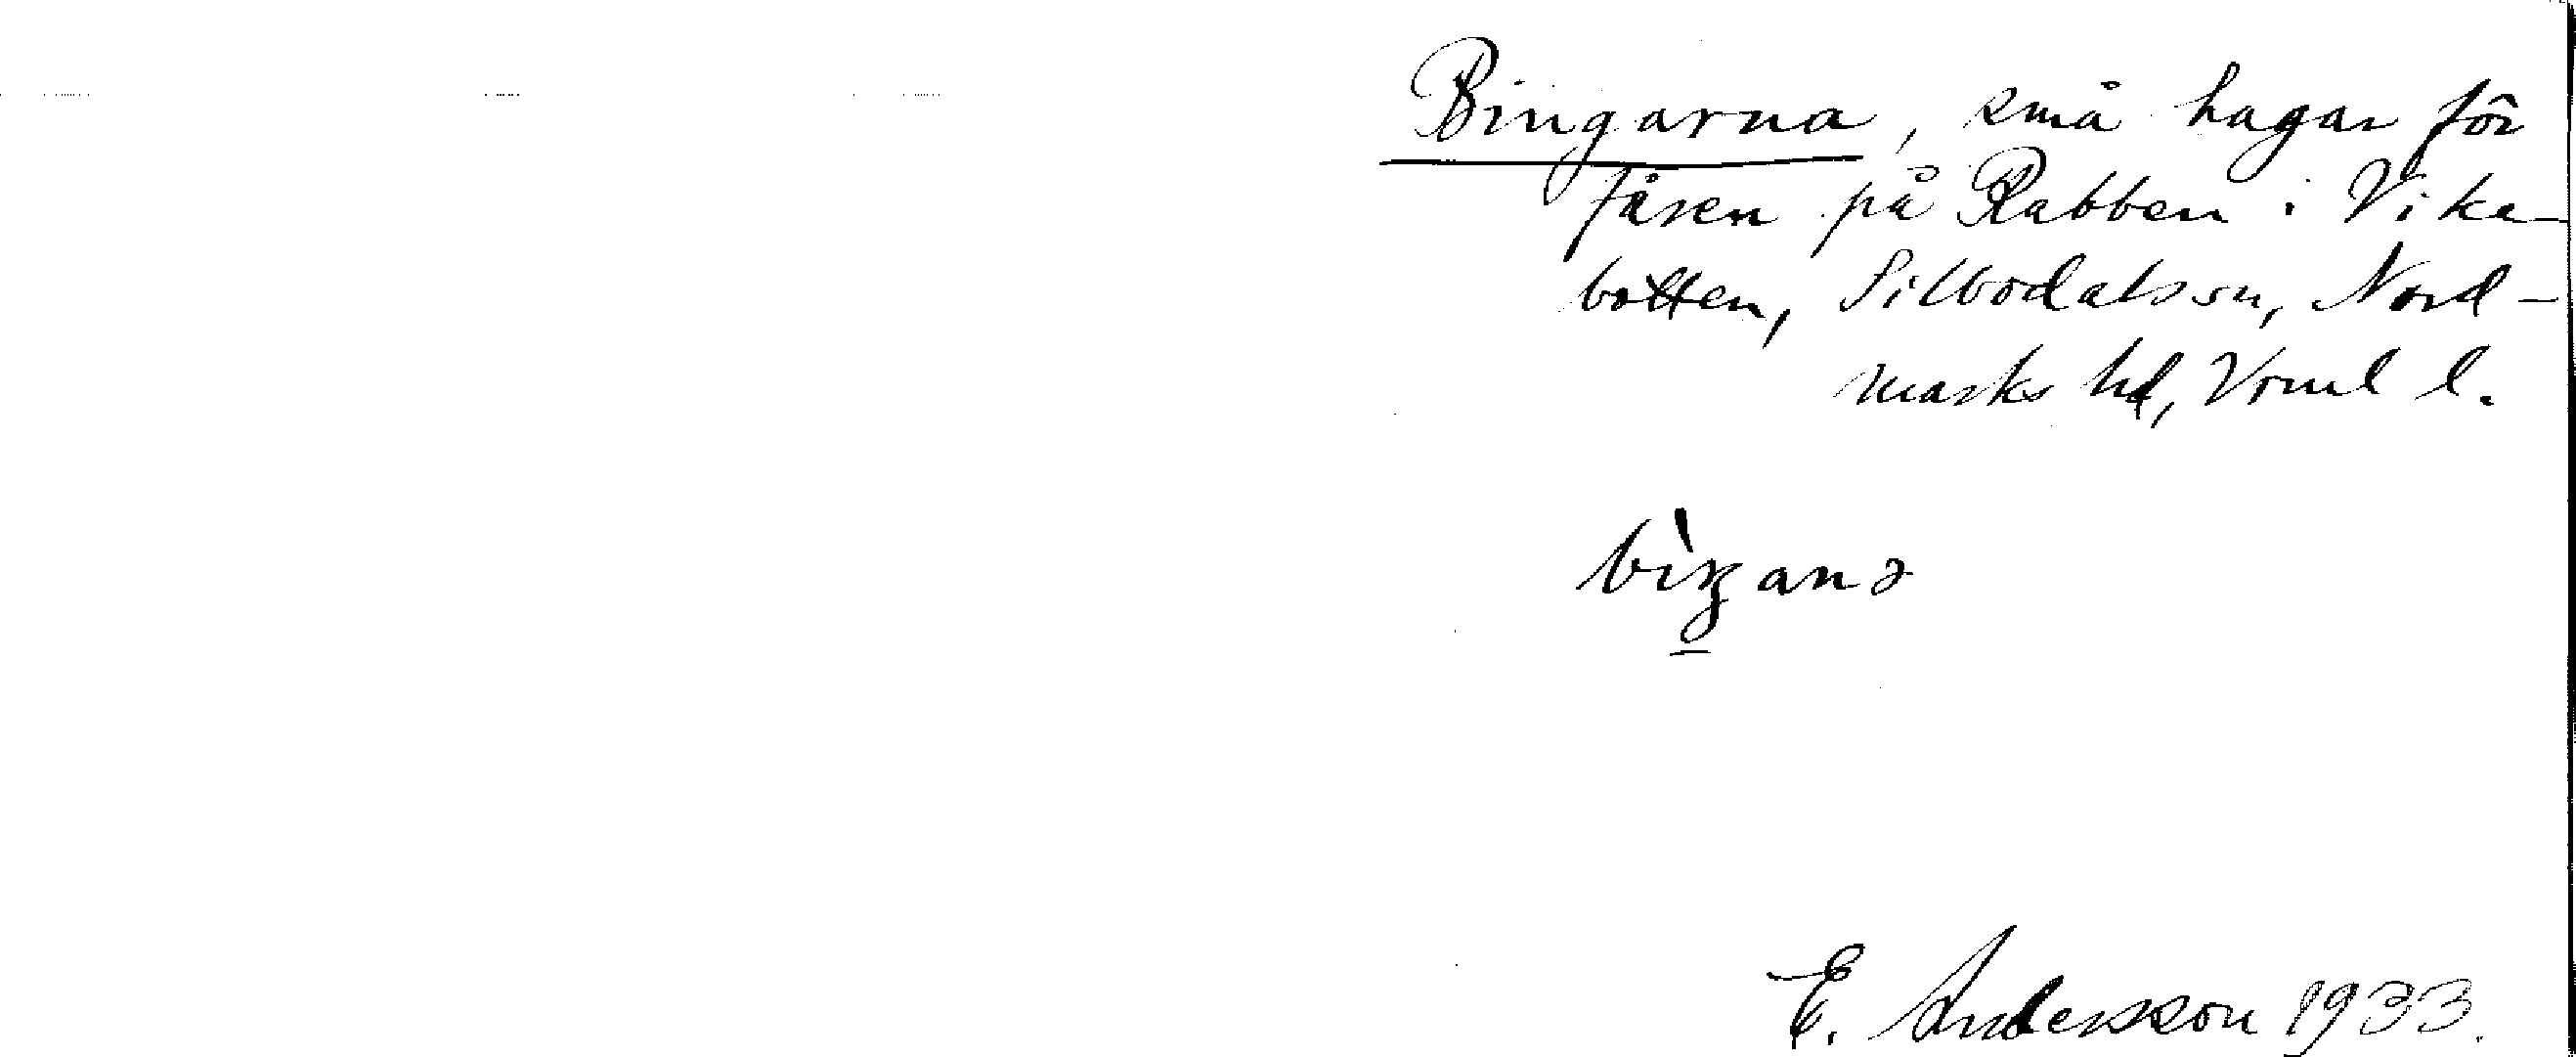 Bingarna, små hagar för
fåren på Rabben i Vika-
botten, Silbodals sn, Nord-
marks hd, Vrml l.
bìŋana
E. Andersson 1933.